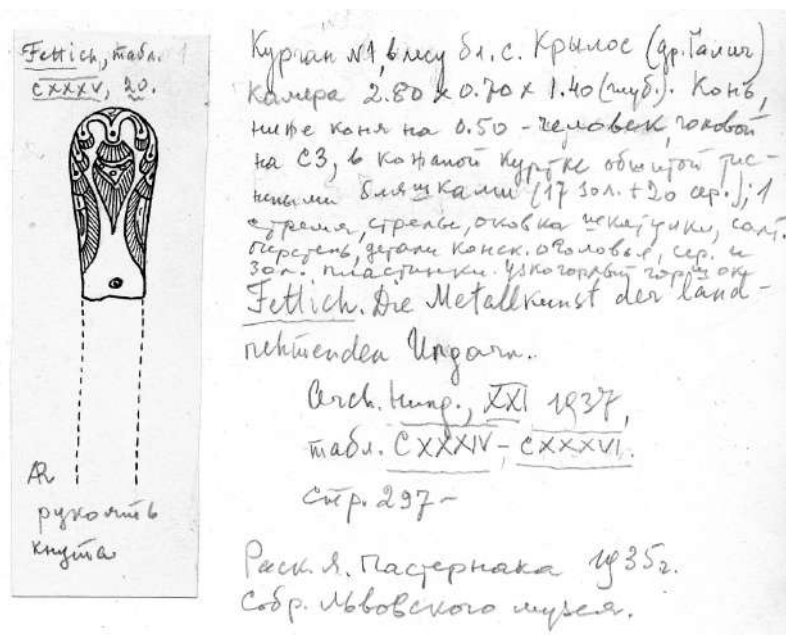 Fettich, табл.
CXXXV, 20.
AR
рукоять
кнута
Курган №1, в лесу бл. с. Крылос (др. Галич)
Камера 2.80 x 0.70 x 1.40 (глуб.). Конь,
ниже коня на 0.50 - человек, головой
на СЗ, в кожаной куртке обшитой тис-
неными бляшками (17 зол. + 20 сер.); 1
стремя, стрелы, оковка шкатулки, салт.
перстень, детали конск. оголовья, сер. и
зол. пластинки. Узкогорлый горшок
Fettich. Die Metallkunst der land-
nehmenden Ungarn.
Arch. Hung., XXI 1937,
табл. CXXXIV - CXXXVI.
Стр. 297 -
Раск. Я. Пастернака 1935 г.
Собр. Львовского музея.